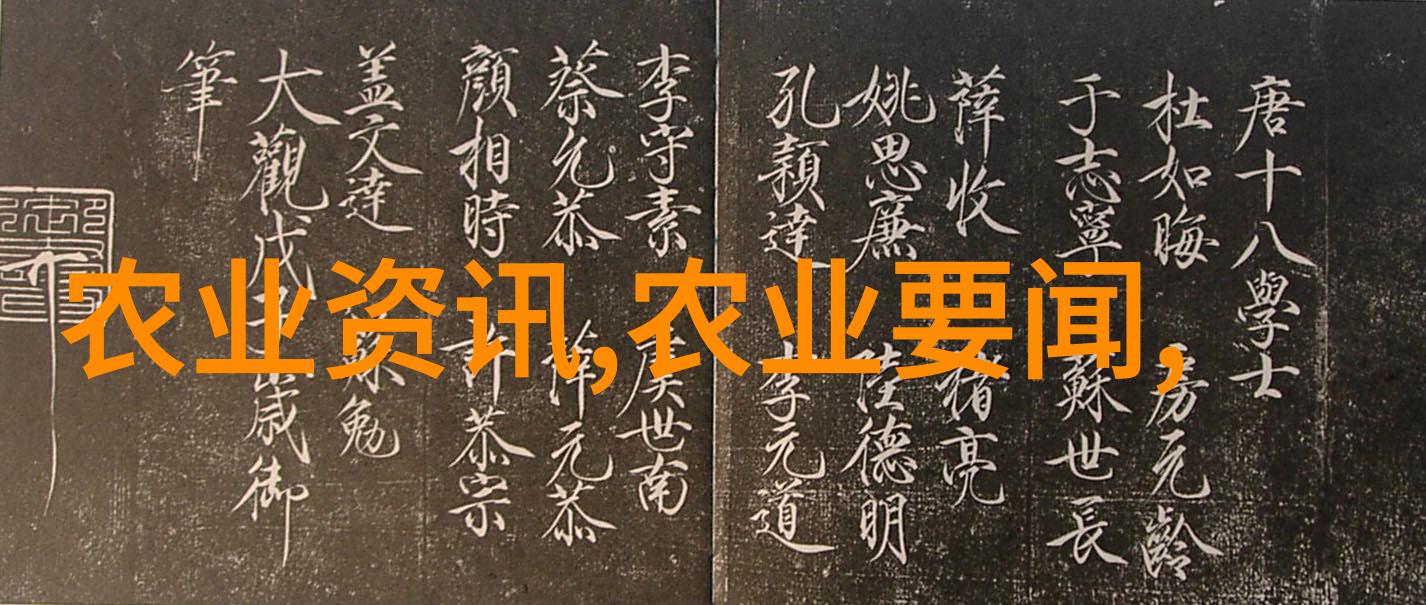 唐十八學士
杜如晦 房元齡
于志寧 蘇世長
薛收 褚亮
姚思廉 陸德明
孔穎達 李元道
李守素 虞世南
蔡允恭 薛元恭
顏相時 許恭宗
盖文達 蘇勉
大觀戊子歲御
筆
农业资讯,农业要闻,